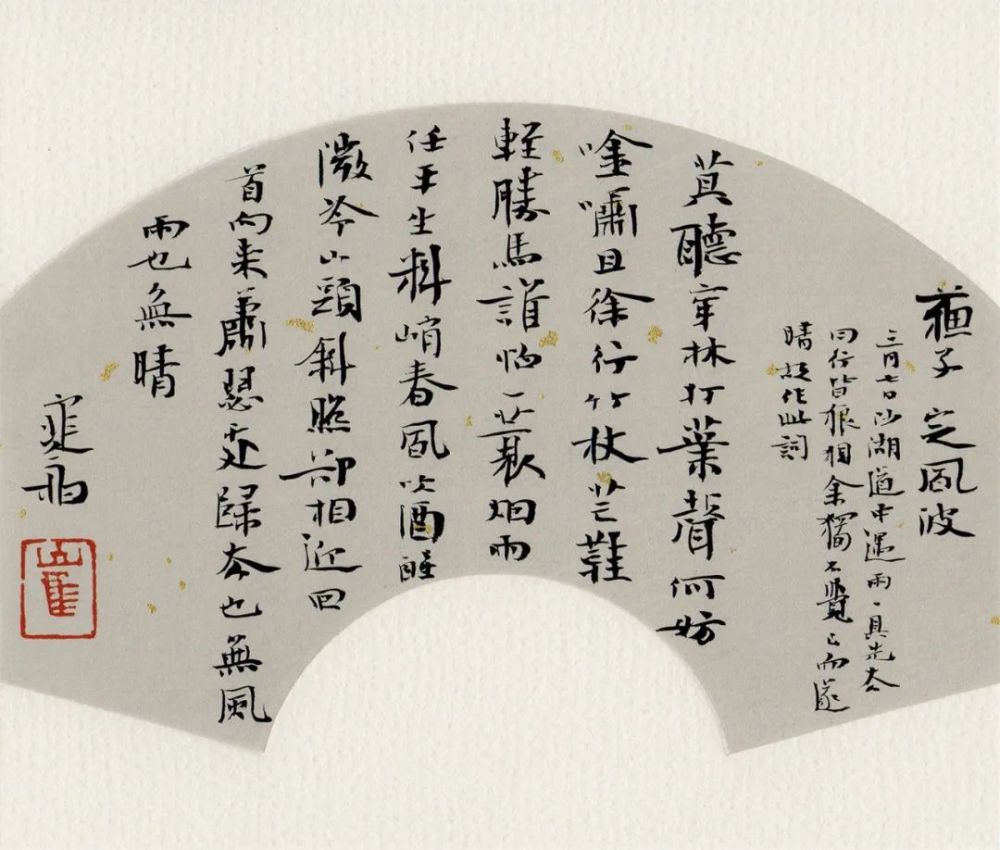 蘓子定風波
三月七日沙湖道中遇雨〻具先去
同行皆狼狽余獨不覺已而遂
晴故作此詞
莫聽穿林打葉聲何妨
唫嘯且徐行竹杖芒鞵
輕勝馬誰怕一蓑烟雨
任平生料峭春風吹酒醒
微冷山頭斜照却相迎回
首向来蕭瑟處歸去也無風
雨也無晴